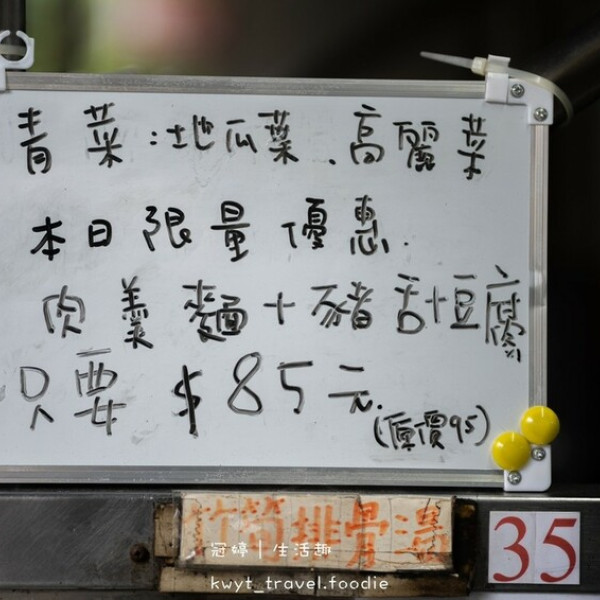 青菜:地瓜葉、高麗菜
本日限量優惠.
肉羹麵+豬舌+豆腐
只要 $85元.
(原價95)
竹筍排骨湯
35
冠婷|生活趣
kwyt_travel.foodie